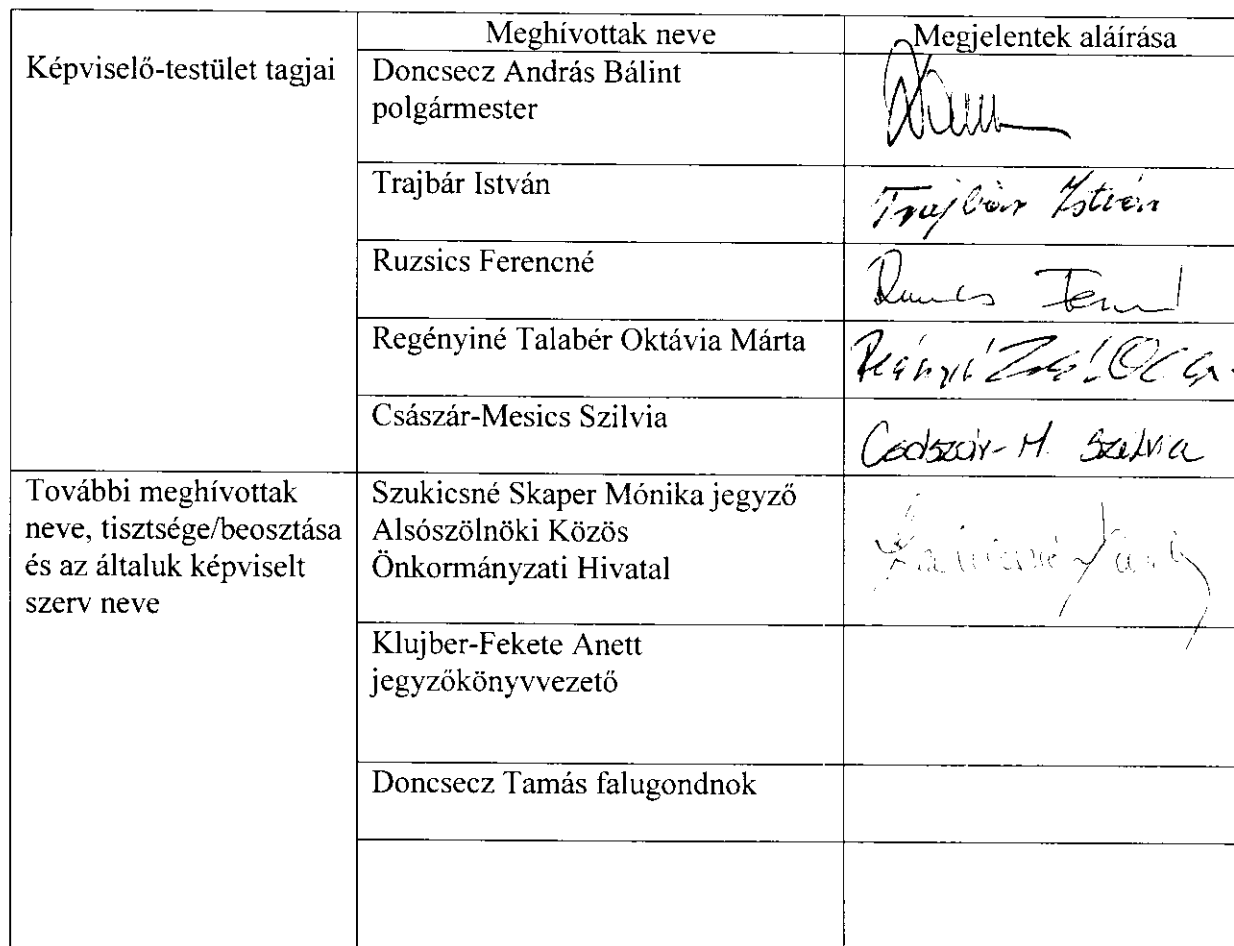 Meghívottak neve
Megjelentek aláírása
Képviselő-testület tagjai
Doncsecz András Bálint
polgármester
Trajbár István
Trajbár István
Ruzsics Ferencné
Regényiné Talabér Oktávia Márta
Császár-Mesics Szilvia
Császár-M. Szilvia
További meghívottak
neve, tisztsége/beosztása
és az általuk képviselt
szerv neve
Szukicsné Skaper Mónika jegyző
Alsószölnöki Közös
Önkormányzati Hivatal
Klujber-Fekete Anett
jegyzőkönyvvezető
Doncsecz Tamás falugondnok